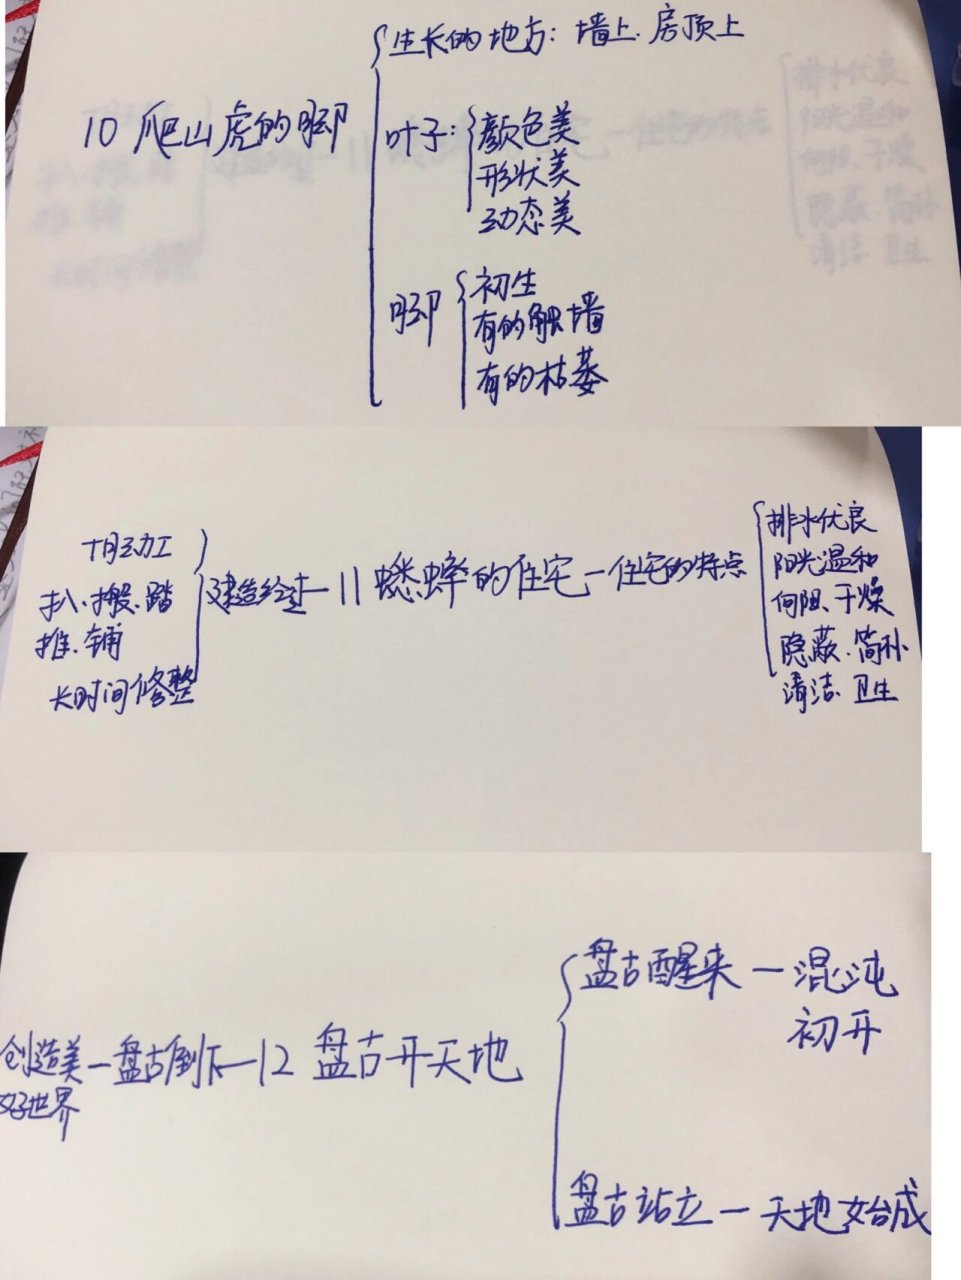 生长的地方：墙上.房顶上
10 爬山虎的脚
叶子：
颜色美
形状美
动态美
脚
初生
有的触墙
有的枯萎
十月动工
扒.搬.踏
推.铺
长时间修整
建造经过—11 蟋蟀的住宅—住宅的特点
排水优良
阳光温和
向阳、干燥
隐蔽.简朴
清洁.卫生
盘古醒来—混沌
初开
创造美—盘古倒下—12 盘古开天地
好世界
盘古站立—天地始成